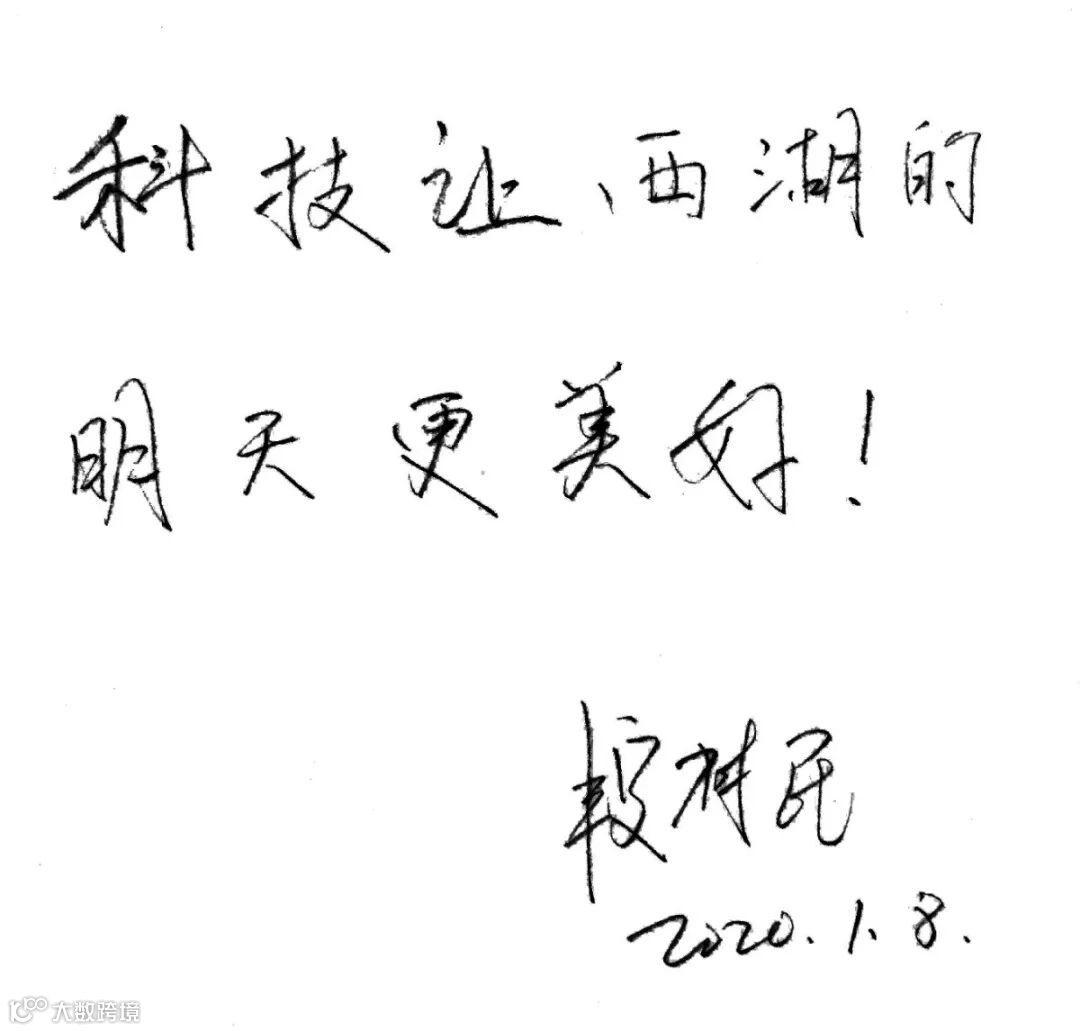 科技让西湖的
明天更美好！
段树民
2020.1.8.
大数跨境